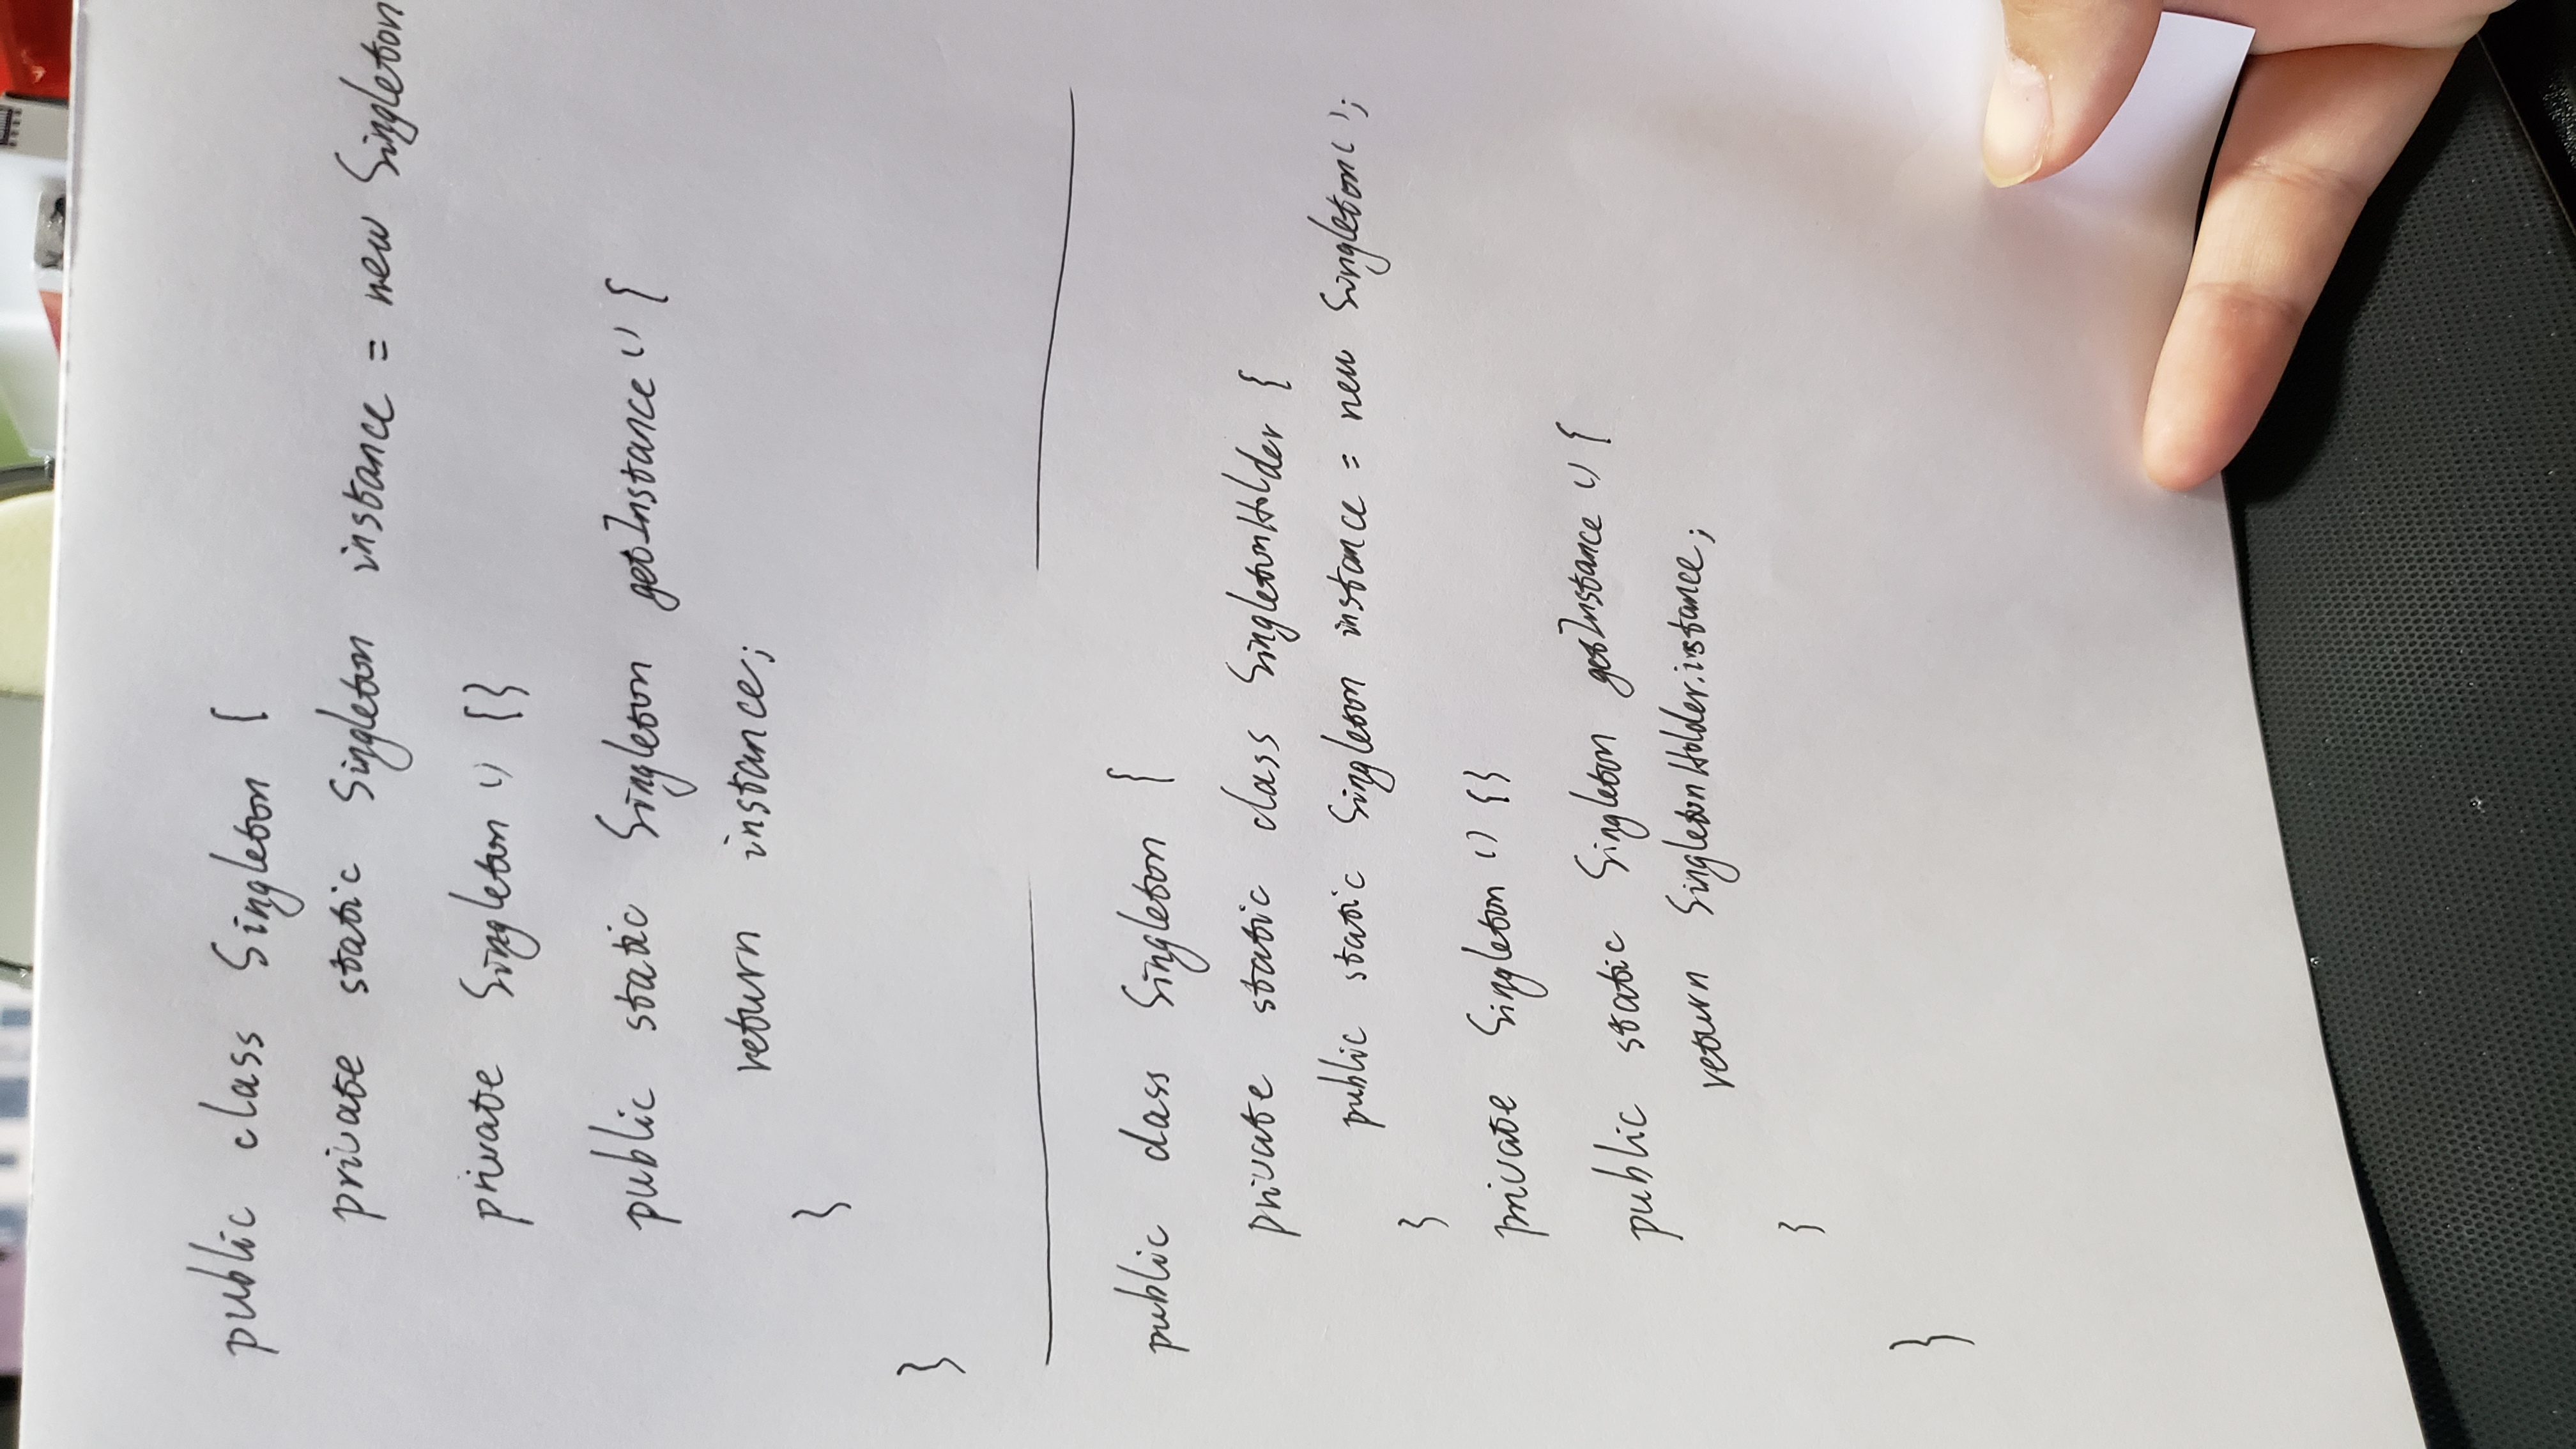 public class Singleton {
private static Singleton instance = new Singleton
private Singleton () {}
public static Singleton getInstance () {
return instance;
}
}
public class Singleton {
private static class SingletonHolder {
public static Singleton instance = new Singleton();
}
private Singleton () {}
public static Singleton getInstance () {
return SingletonHolder.instance;
}
}